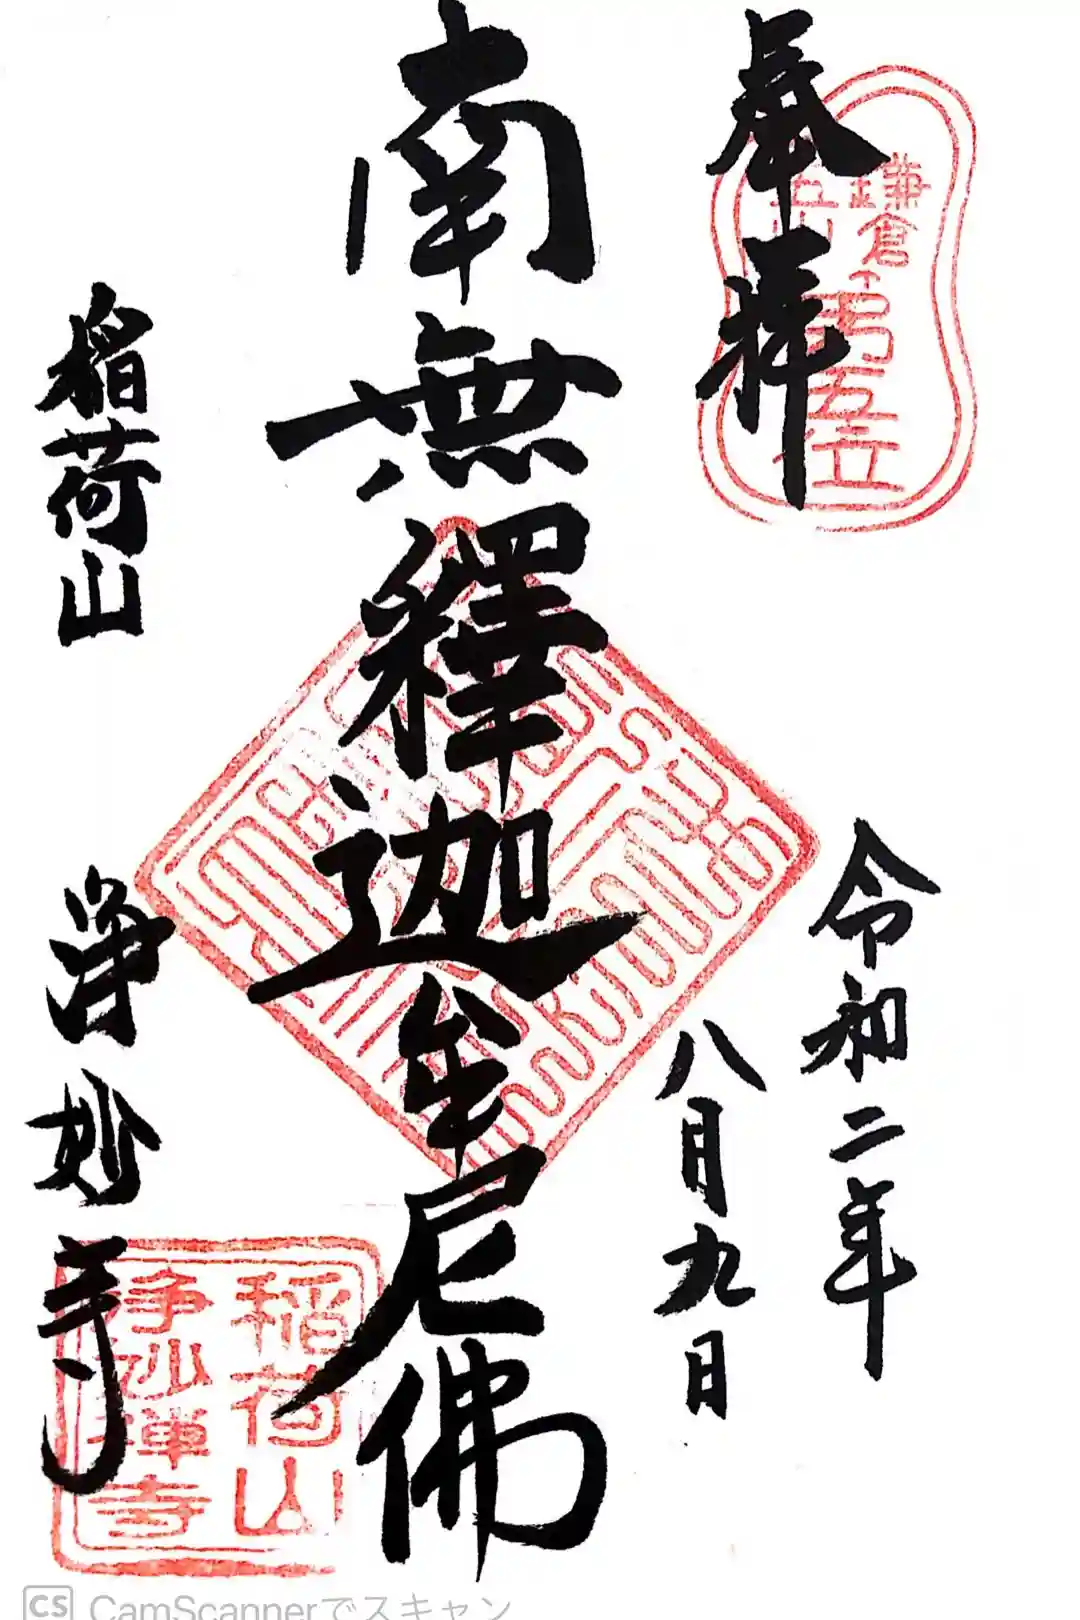 奉拝
鎌倉
五山
第五位
令和二年
八月九日
南無釋迦牟尼佛
稲荷山
浄妙寺
稲荷山
浄妙禅寺
CS CamScannerでスキャン